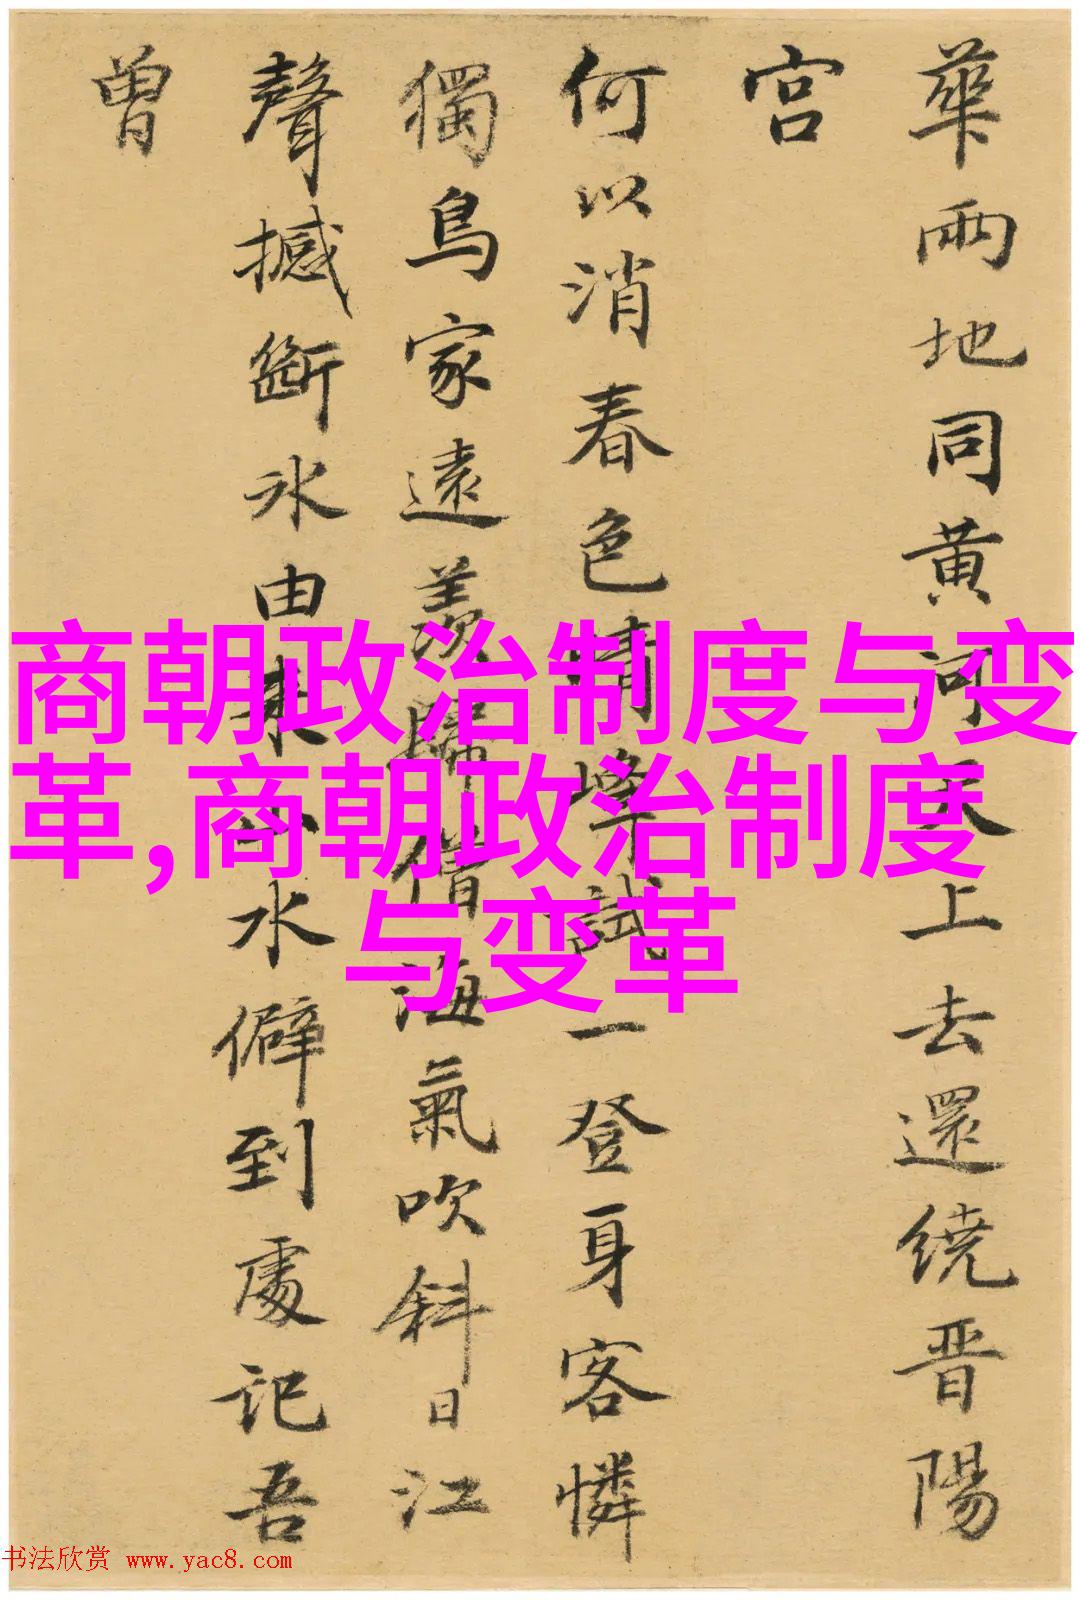 華兩地同黄河天上去還繞晋陽
宫
何以消春色晴峰試一登身客憐
獨鳥家遠羨歸僧海氣吹斜日江
聲撼斷冰由来山水僻到處记吾
曾
商朝政治制度与变
革,商朝政治制度
与变革
书法欣赏 www.yac8.com